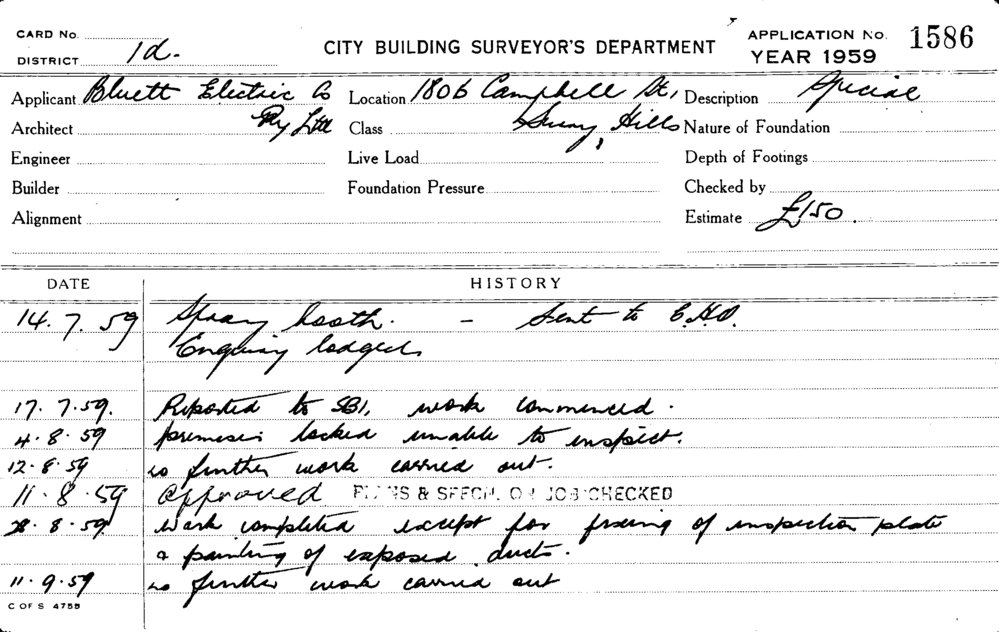 CARD No.
DISTRICT 1d.
CITY BUILDING SURVEYOR'S DEPARTMENT
APPLICATION No. 1586
YEAR 1959
Applicant Bluett Electric Co Location 180B Campbell St, Description Special
Architect Pty Ltd Class Surry Hills Nature of Foundation
Engineer Live Load Depth of Footings
Builder Foundation Pressure Checked by
Alignment Estimate £150.
DATE HISTORY
14.7.59 Spray booth. - Sent to E.H.O.
Enquiry lodged
17.7.59. Reported to SBI, work commenced.
4.8.59 premises locked unable to inspect.
12.8.59 no further work carried out.
11.8.59 Approved PLANS & SPECN. ON JOB CHECKED
28.8.59. Work completed except for fixing of inspection plate
& painting of exposed ducts.
11.9.59 no further work carried out
C OF S 4755